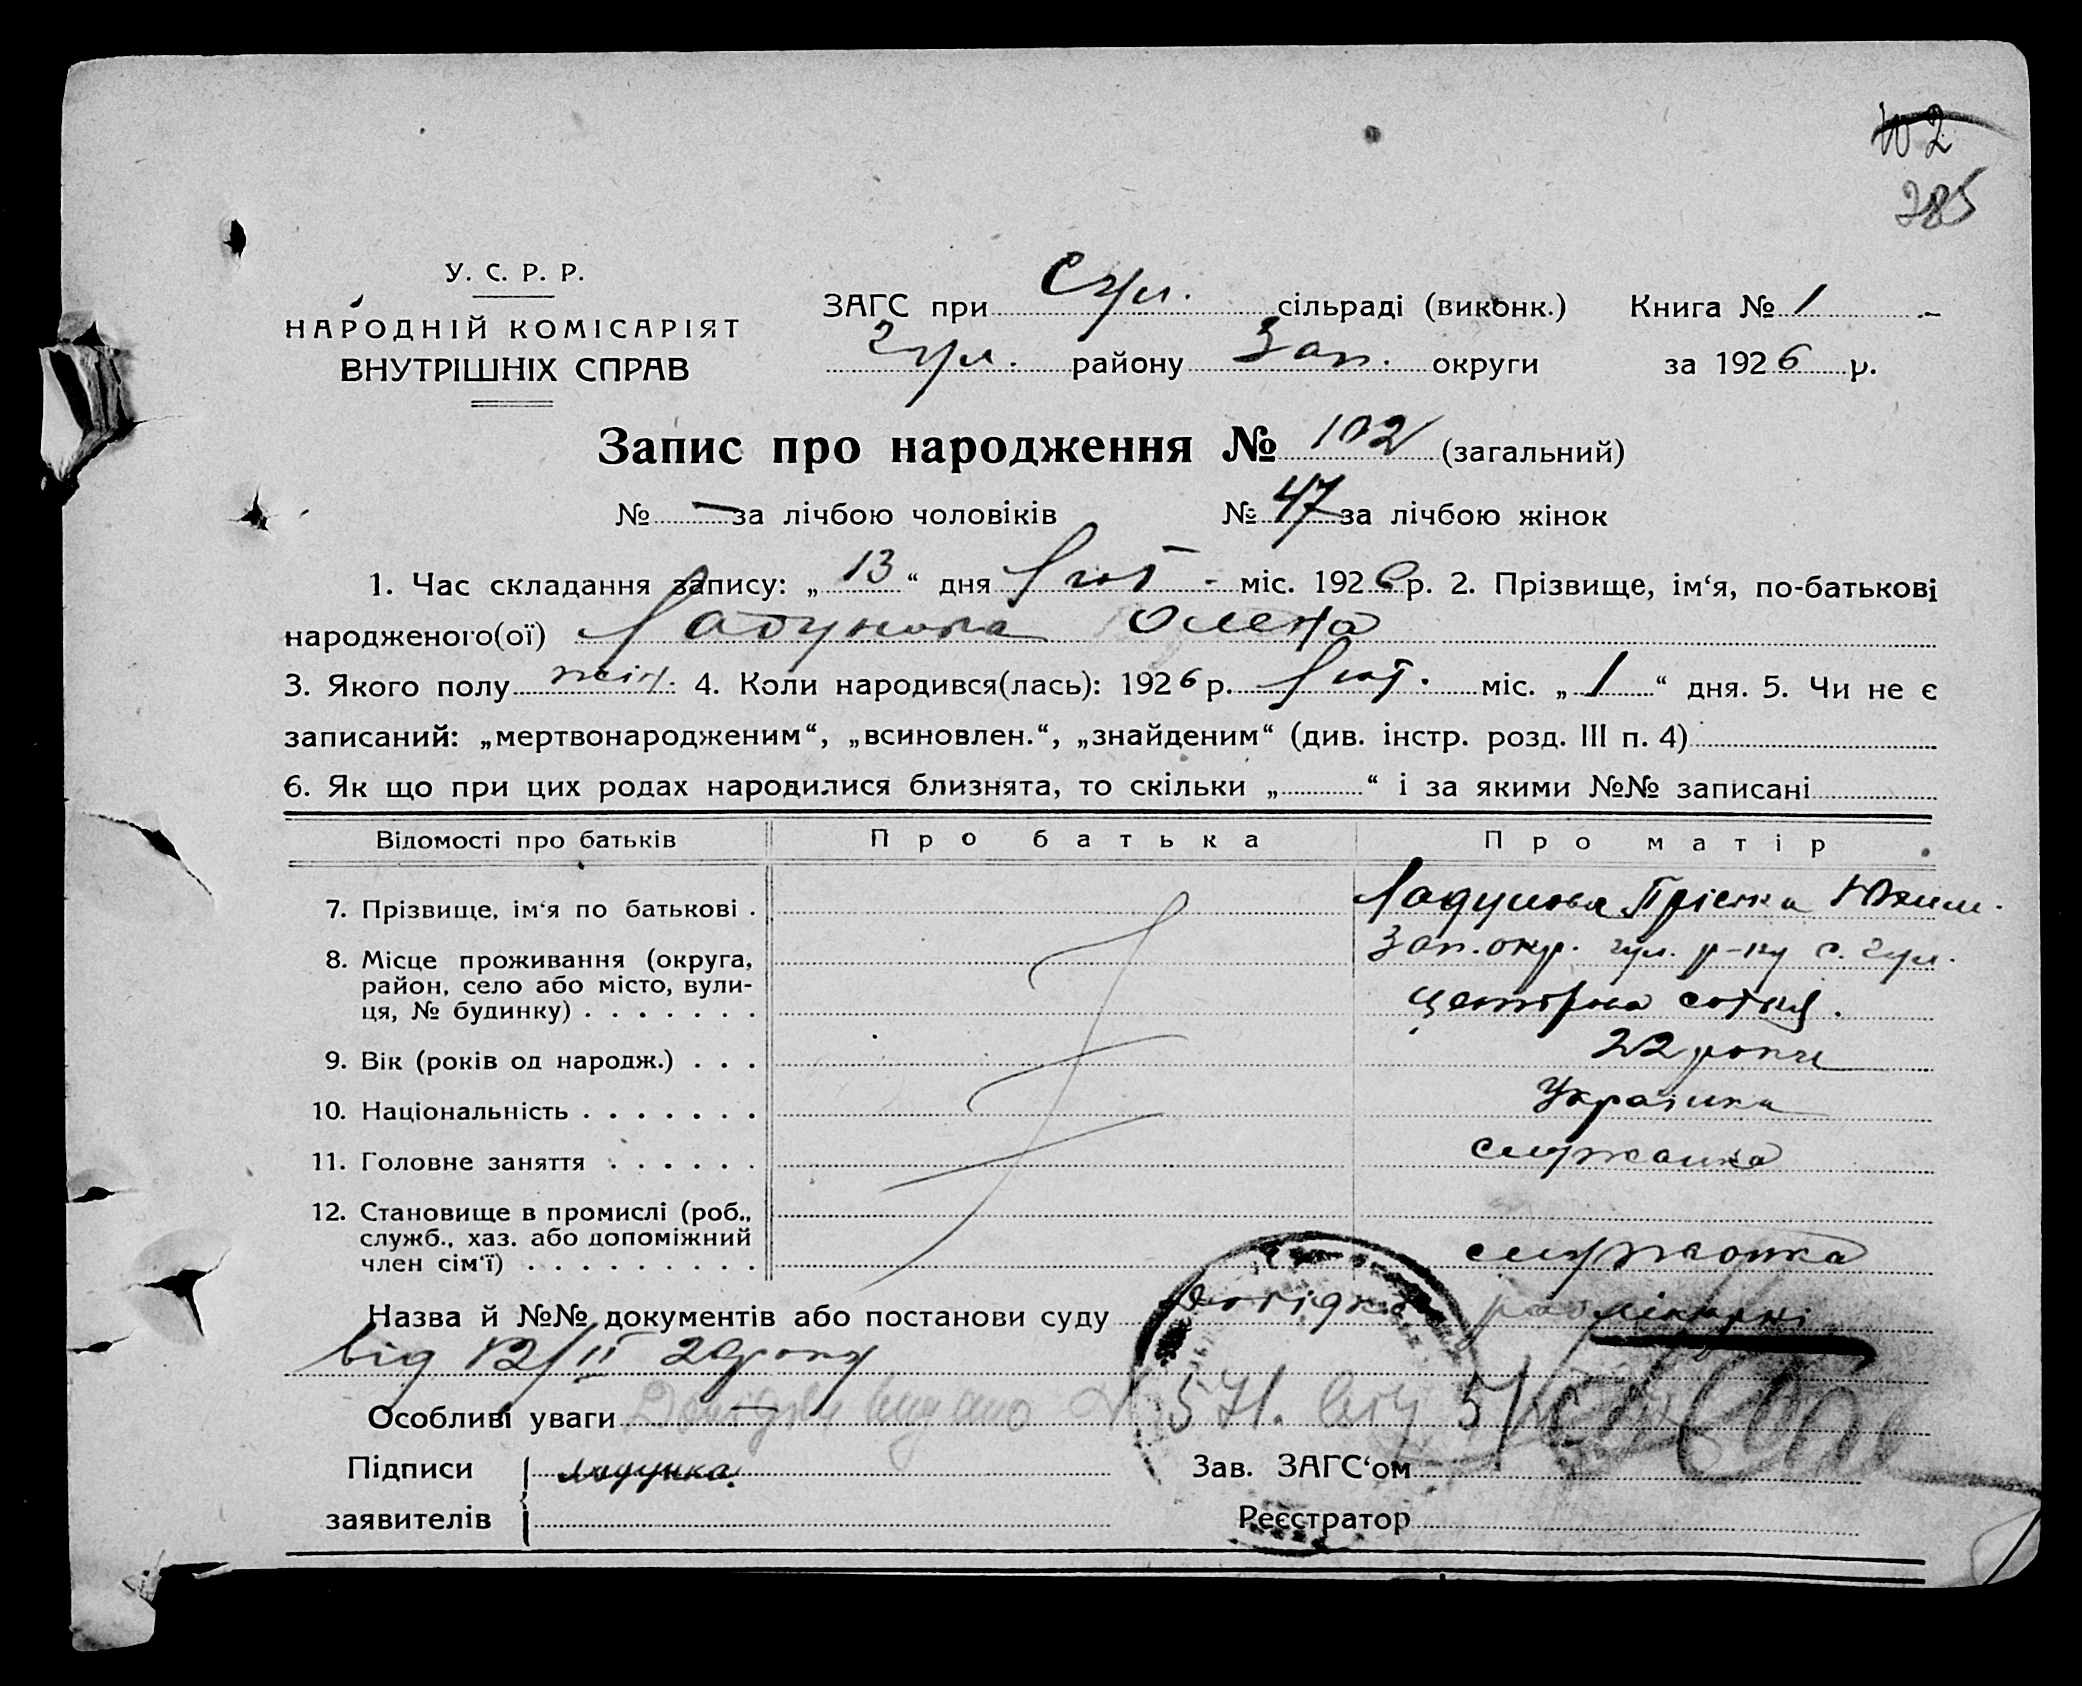 102
285
У. С. Р. Р.
НАРОДНІЙ КОМІСАРІЯТ
ВНУТРІШНІХ СПРАВ
ЗАГС при сільраді (виконк.) Книга № 1
Гул. району Зап. округи за 1926 р.
Запис про народження № 102 (загальний)
№ — за лічбою чоловіків № 47 за лічбою жінок
1. Час складання запису: „13“ дня Лют - міс. 1926 р. 2. Прізвище, ім‘я, по-батькові
народженого(ої) Олена
3. Якого полу жін. 4. Коли народився(лась): 1926 р. Лют. міс. „1“ дня. 5. Чи не є
записаний: „мертвонародженим“, „всиновлен.“, „знайденим“ (див. інстр. розд. III п. 4)
6. Як що при цих родах народилися близнята, то скільки „ “ і за якими №№ записані
Відомості про батьків Про батька Про матір
7. Прізвище, ім‘я по батькові . Юхим.
8. Місце проживання (округа, Зап. окр. Гул. р-ну с. Гул.
район, село або місто, вули-
ця, № будинку) . . . . . . . сотня.
9. Вік (років од народж.) . . . 22 роки
10. Національність . . . . . . . Українка
11. Головне заняття . . . . . . служанка
12. Становище в промислі (роб.,
служб., хаз. або допоміжний
член сім‘ї) . . . . . . . . . служанка
Назва й №№ документів або постанови суду Довідка лікарні
від 12/II 26 року
Особливі уваги Довідку видано 571.
Підписи Зав. ЗАГС‘ом
заявителів Реєстратор